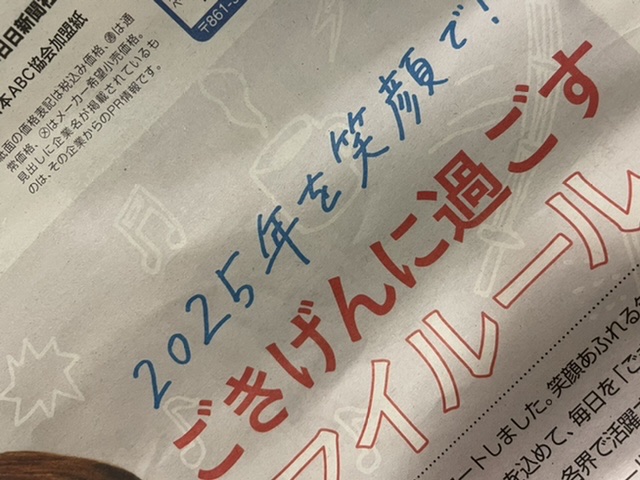 日日新聞社
本ABC協会加盟紙
紙面の価格表記は税込み価格、㊜は通
常価格、㋱はメーカー希望小売価格。
見出しに企業名が掲載されているも
のは、その企業からのPR情報です。
〒861-
2025年を笑顔で!
ごきげんに過ごす
マイルール
ートしました。笑顔あふれる
を込めて、毎日を「ご
各界で活躍